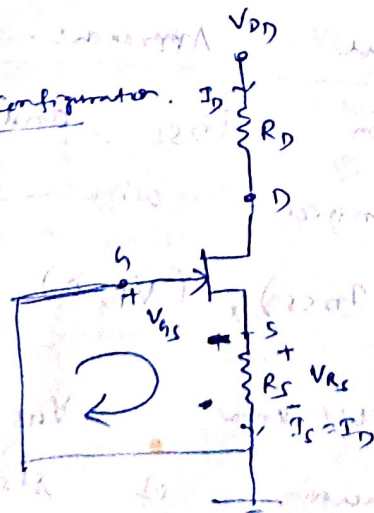 V_DD
Configuration. I_D
R_D
D
G
+
V_GS
S
+
R_S V_RS
-
I_S = I_D